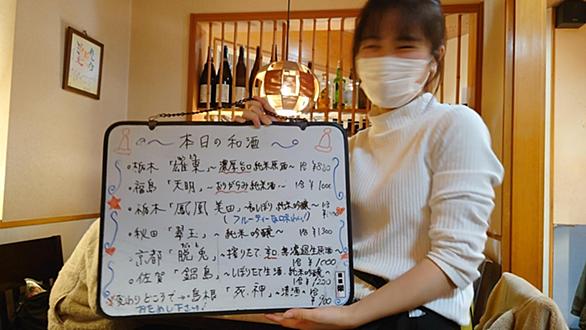 ～ 本日の和酒 ～
・栃木「雄東」～濃厚旨口純米原酒～ 1合 ¥820
・福島「天明」～おりがらみ純米酒～ 1合 ¥1000
・栃木「鳳凰美田」～ しぼり 純米吟醸～ 1合
(フルーティーな味わい!)
・秋田「翠玉」～純米吟醸～ 1合 ¥1300
・京都「脱兎」～搾りたて 無濾過生原酒～ 1合 ¥1000
・佐賀「鍋島」～しぼりたて生酒 純米吟醸～ 1合 ¥1250
変わりどころで→島根「死神」～清酒～ 1合 ¥900
おためし下さい!